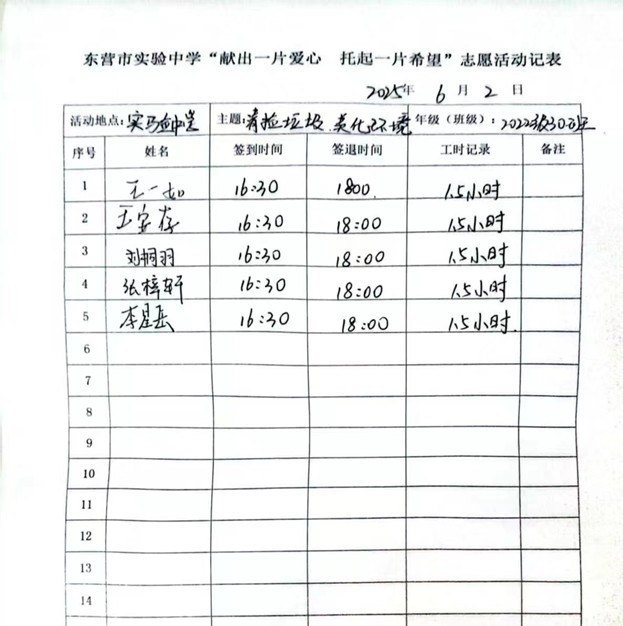 东营市实验中学“献出一片爱心 托起一片希望”志愿活动记表
2025年 6 月 2 日
活动地点: 主题:清捡垃圾 美化环境 年级(班级):2022级30班
序号 姓名 签到时间 签退时间 工时记录 备注
1 王一如 16:30 1800 1.5小时
2 王安存 16:30 18:00 1.5小时
3 刘桐羽 16:30 18:00 1.5小时
4 张梓轩 16:30 18:00 1.5小时
5 李星岳 16:30 18:00 1.5小时.
6
7
8
9
10
11
12
13
14